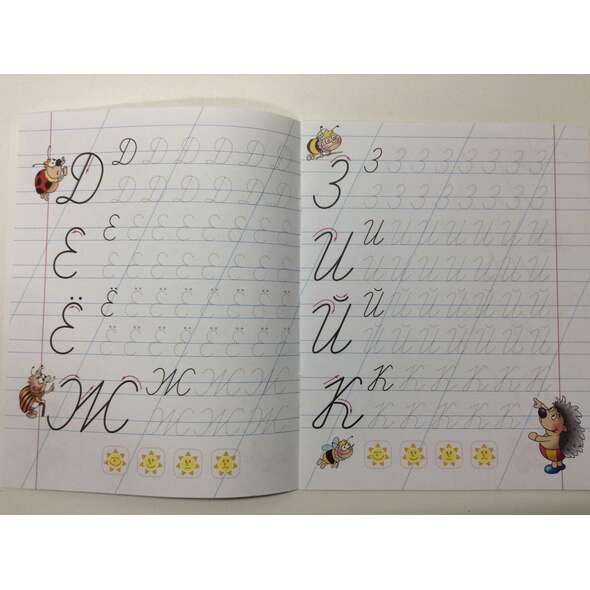 Д Д Д Д Д Д Д Д
Д Д Д Д Д Д Д
Е Е Е Е Е Е Е Е Е
Е Е Е Е Е Е Е Е
Ё Ё Ё Ё Ё Ё Ё Ё Ё
Ё Ё Ё Ё Ё Ё Ё Ё
Ж Ж Ж Ж Ж
Ж Ж Ж Ж
З З З З З З З З З
З З З З З З З З
И И И И И И И И И
И И И И И И И И
Й Й Й Й Й Й Й Й Й
Й Й Й Й Й Й Й Й
К К К К К К К
К К К К К К